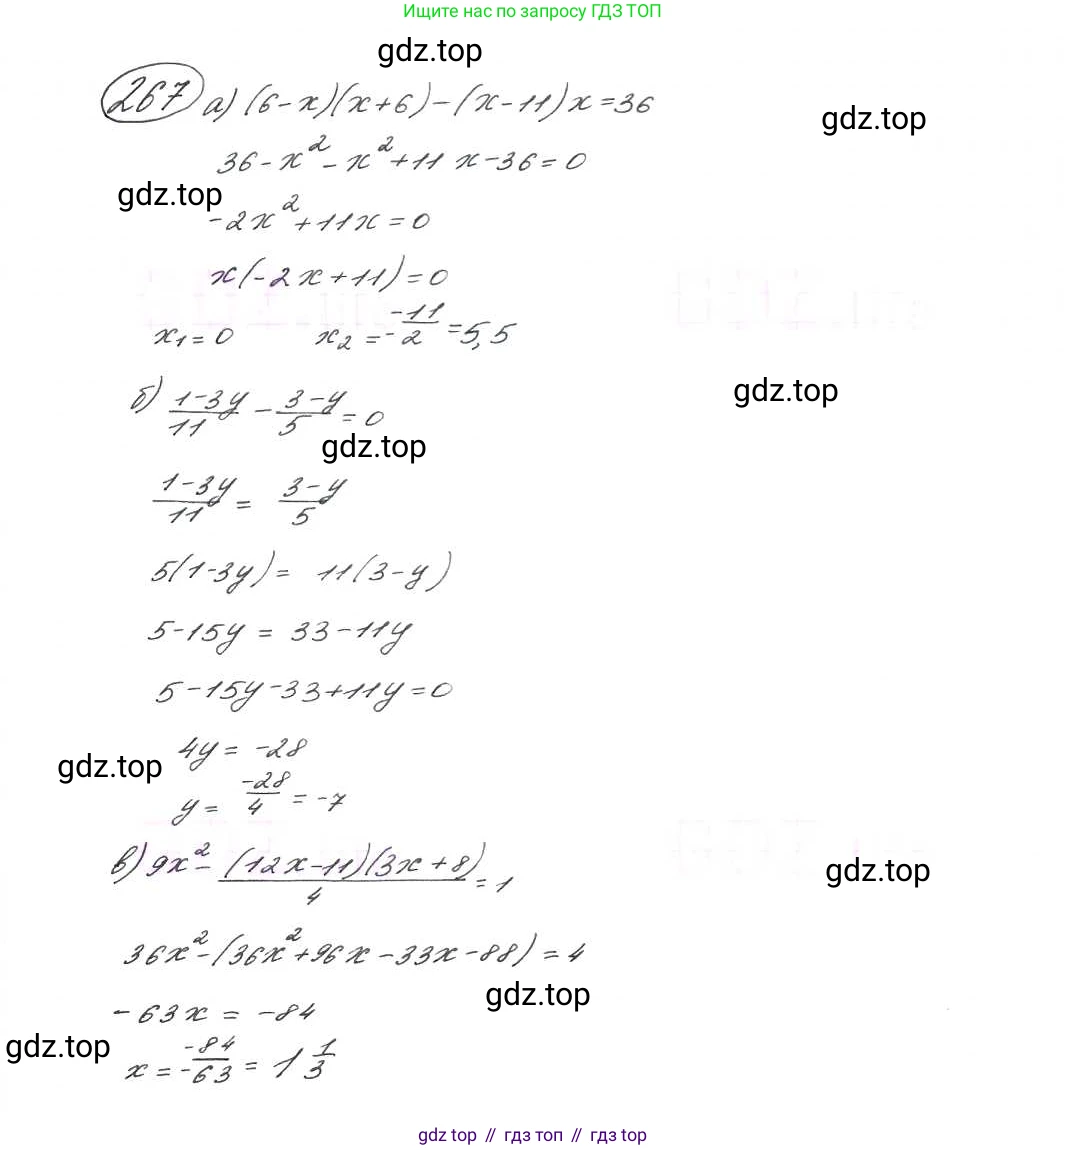 Ищите нас по запросу ГДЗ ТОП
gdz.top
267 а) (6-x)(x+6)-(x-11)x=36
gdz.top
36-x²-x²+11x-36=0
gdz.top
-2x²+11x=0
x(-2x+11)=0
x₁=0 x₂=-11/-2=5,5
gdz.top
б) 1-3y/11 - 3-y/5 = 0
gdz.top
1-3y/11 = 3-y/5
5(1-3y)= 11(3-y)
5-15y = 33-11y
5-15y-33+11y=0
4y = -28
gdz.top
y = -28/4 = -7
в) 9x² - (12x-11)(3x+8)/4 = 1
gdz.top
36x²-(36x²+96x-33x-88)=4
gdz.top
-63x = -84
gdz.top
x = -84/-63 = 1 1/3
gdz top // гдз топ // gdz top